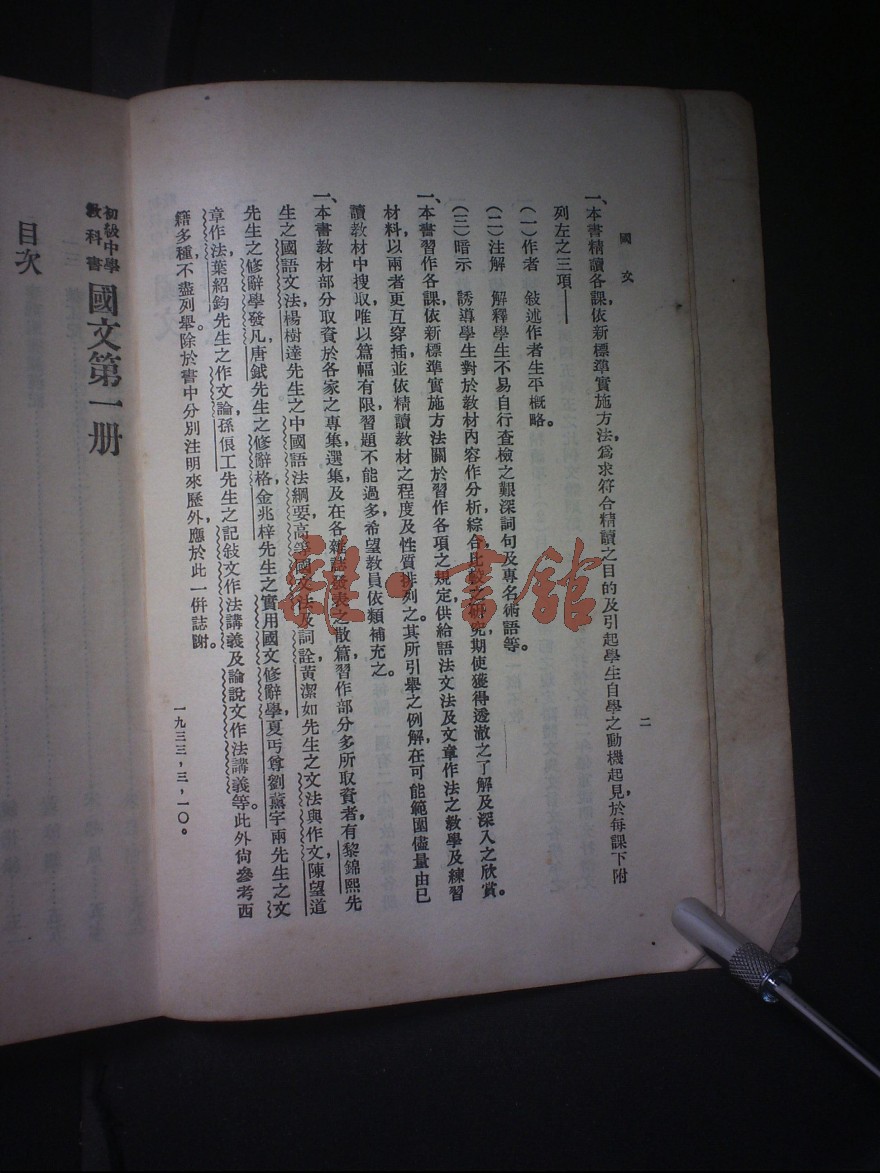 國文
二
一、本書精讀各課，依新標準實施方法，爲求符合精讀之目的及引起學生自學之動機起見，於每課下附
列左之三項——
（一）作者　敍述作者生平概略。
（二）注解　解釋學生不易自行查檢之艱深詞句及專名術語等。
（三）暗示　誘導學生對於教材內容作分析，綜合，比較之研究，期使獲得透澈之了解及深入之欣賞。
一、本書習作各課，依新標準實施方法關於習作各項之規定，供給語法文法及文章作法之教學及練習
材料，以兩者更互穿插，並依精讀教材之程度及性質排列之。其所引舉之例解，在可能範圍儘量由已
讀教材中搜取，唯以篇幅有限，習題不能過多，希望教員依類補充之。
一、本書教材部分取資於各家之專集，選集，及在各雜誌發表之散篇，習作部分多所取資者，有黎錦熙先
生之國語文法，楊樹達先生之中國語法綱要，高等國文法及詞詮，黃潔如先生之文法與作文，陳望道
先生之修辭學發凡，唐鉞先生之修辭格，金兆梓先生之實用國文修辭學，夏丏尊劉薰宇兩先生之文
章作法，葉紹鈞先生之作文論，孫俍工先生之記敍文作法講義及論說文作法講義等。此外尙參考西
籍多種，不盡列舉。除於書中分別注明來歷外，應於此一併誌謝。
一九三三，三，一〇。
初級中學
教科書
國文第一册
目次
雜·書館